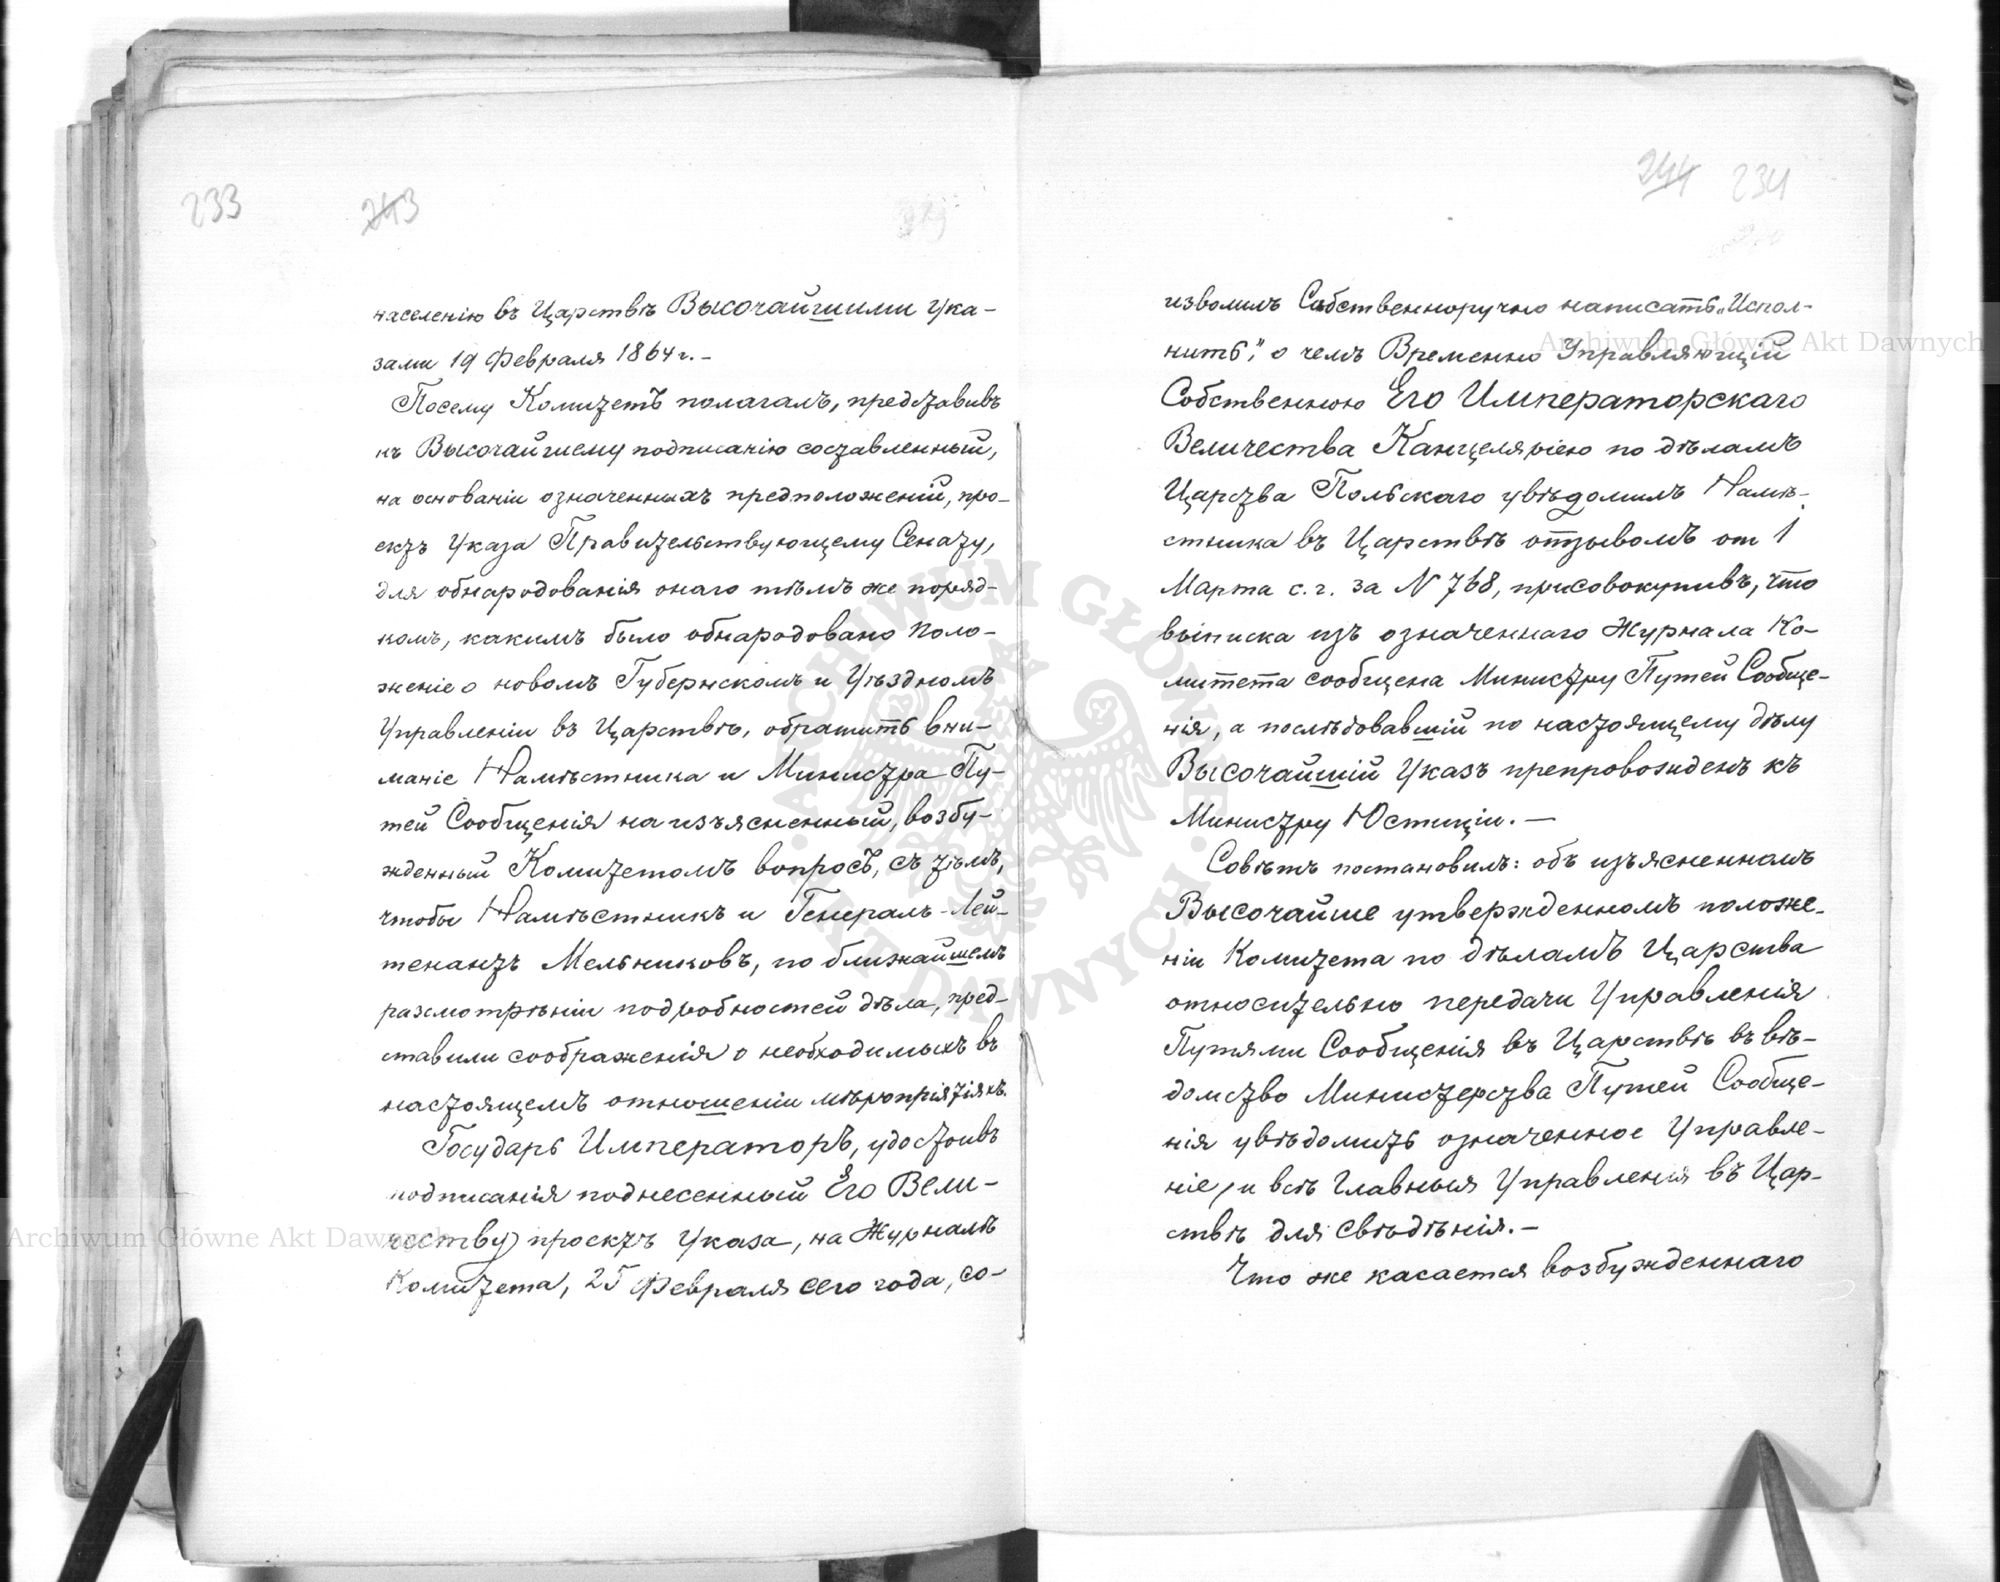 233
243
населенію въ Царствѣ Высочайшими Ука-
зами 19 Февраля 1864 г. –
Посему Комитетъ полагалъ, представивъ
къ Высочайшему подписанію составленный,
на основаніи означенныхъ предположеній, про-
ектъ Указа Правительствующему Сенату,
для обнародованія онаго тѣмъ же поряд-
комъ, какимъ было обнародовано Поло-
женіе о новомъ Губернскомъ и Уѣздномъ
Управленіи въ Царствѣ, обратить вни-
маніе Намѣстника и Министра Пу-
тей Сообщенія на изъясненный, возбу-
жденный Комитетомъ вопросъ, съ тѣмъ,
чтобы Намѣстникъ и Генералъ-Лей-
тенантъ Мельниковъ, по ближайшемъ
разсмотрѣніи подробностей дѣла, пред-
ставили соображенія о необходимыхъ въ
настоящемъ отношеніи мѣропріятіяхъ.
Государь Императоръ, удостоивъ
подписанія поднесенный Его Вели-
честву проектъ Указа, на Журналѣ
Комитета, 25 Февраля сего года, со-
244 234
изволилъ Собственноручно написать „Испол-
нить“, о чемъ Временно Управляющій
Собственною Его Императорскаго
Величества Канцеляріею по дѣламъ
Царства Польскаго увѣдомилъ Намѣ-
стника въ Царствѣ отзывомъ от 1
Марта с. г. за N 768, присовокупивъ, что
выписка изъ означеннаго Журнала Ко-
митета сообщена Министру Путей Сообще-
нія, а послѣдовавшій по настоящему дѣлу
Высочайшій Указъ препровожденъ къ
Министру Юстиціи. –
Совѣтъ постановилъ: объ изъясненномъ
Высочайше утвержденномъ положе-
ніи Комитета по дѣламъ Царства
относительно передачи Управленія
Путями Сообщенія въ Царствѣ въ вѣ-
домство Министерства Путей Сообще-
нія увѣдомить означенное Управле-
ніе, и всѣ Главныя Управленія въ Цар-
ствѣ для свѣдѣнія. –
Что же касается возбужденнаго
Archiwum Główne Akt Dawnych
Archiwum Główne Akt Dawnych
ARCHIWUM GŁÓWNE AKT DAWNYCH